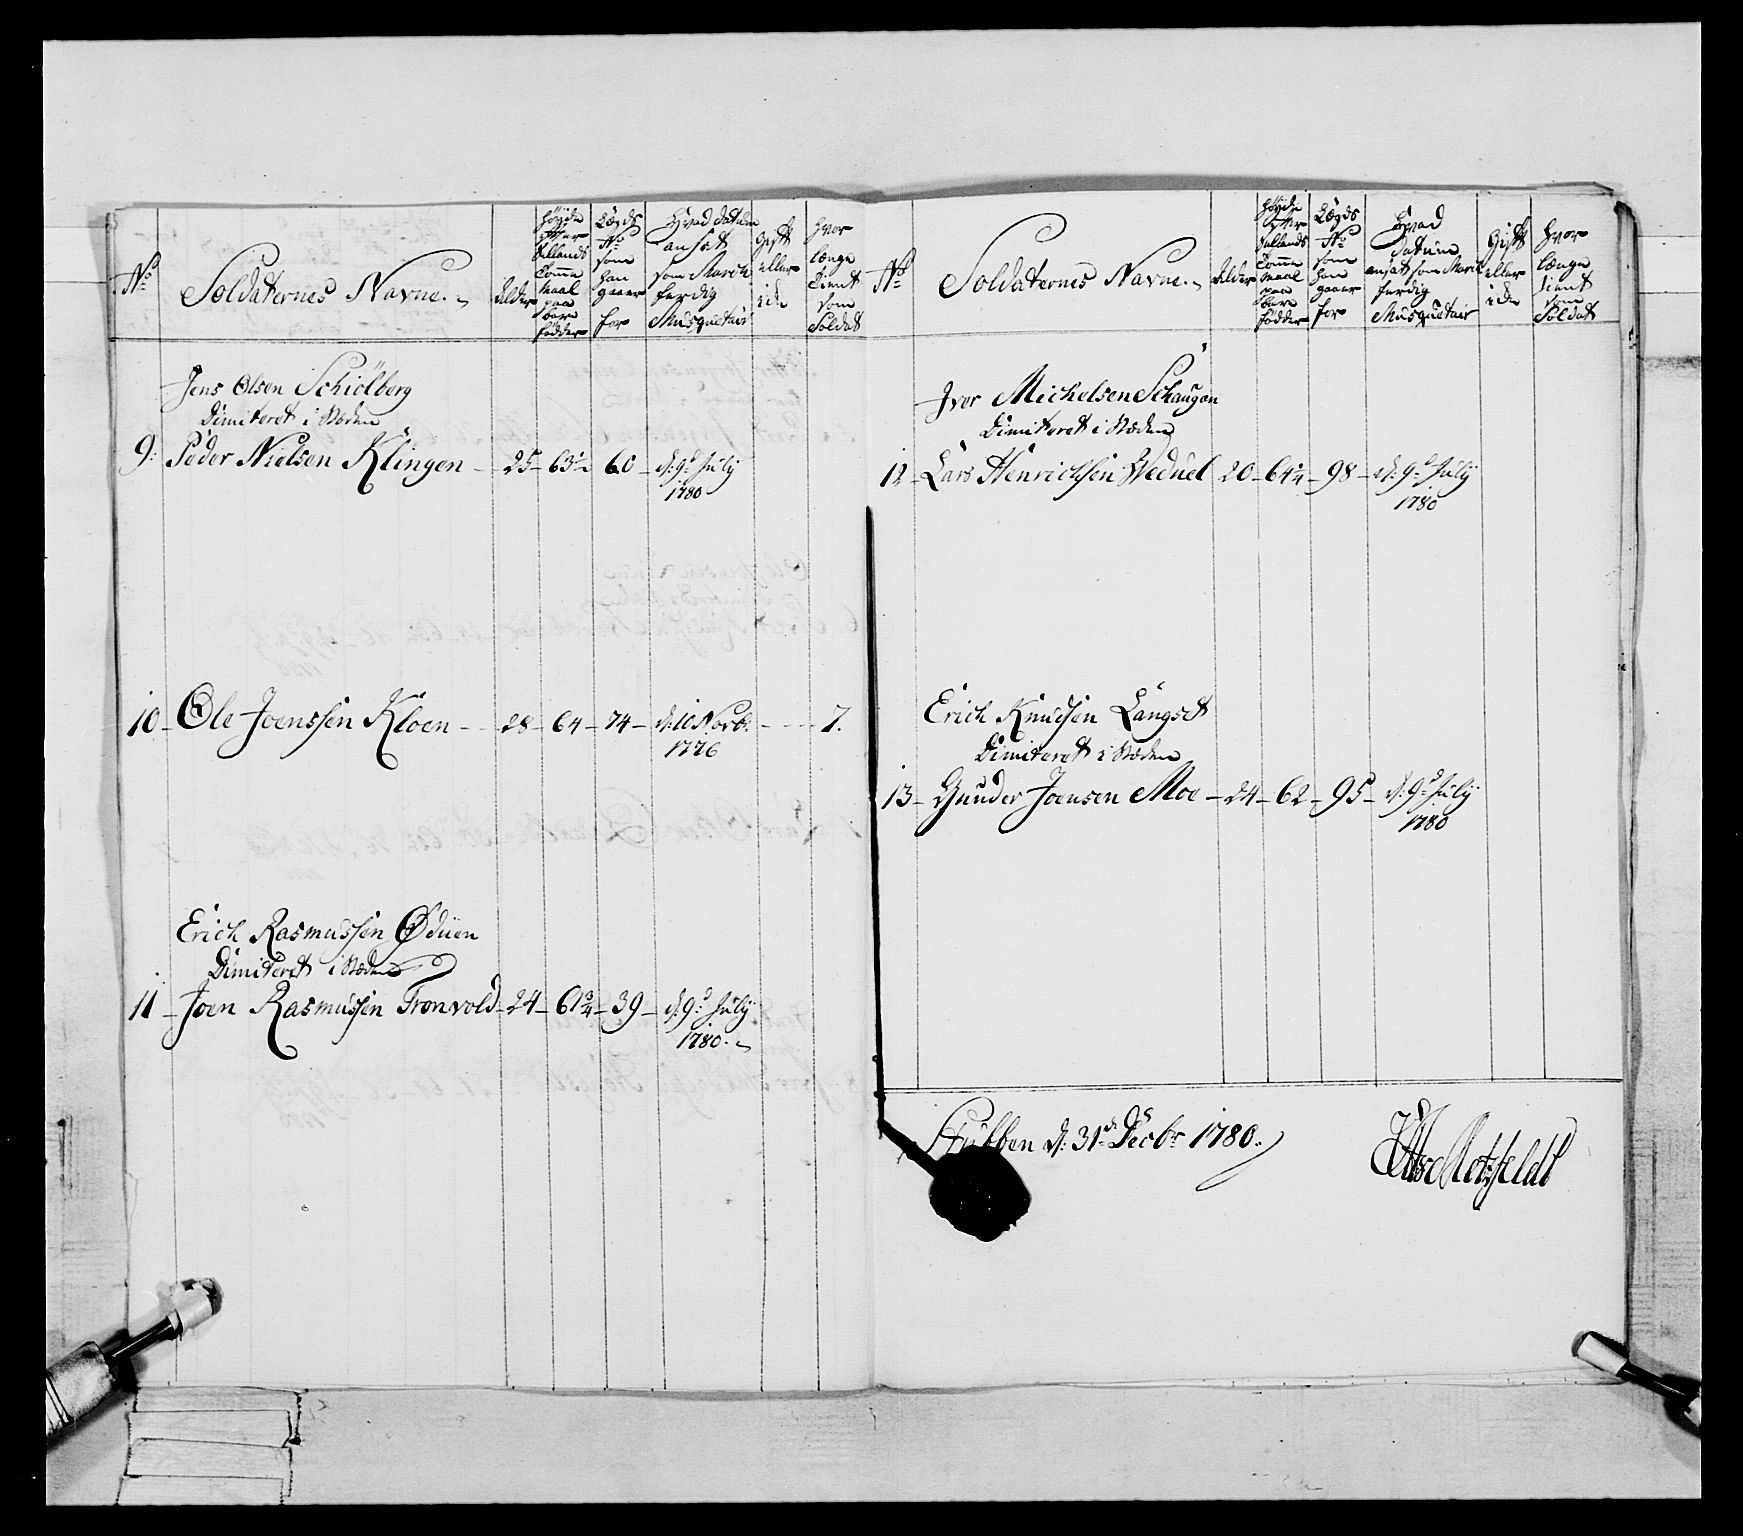 No
Soldaternes Navne.
Alder
Høyde
efter
Sællands
Tomme
maal
paa
bare
fødder
Lægds
No
som
han
gaaer
for
Hvad datum
ansat
som March
færdig
Musquetair
Gift
eller
ide
Hvor
længe
tient
som
Soldat
Jens Olsen Schiölberg
Dimiteret i Steden
9: Peder Nielsen Klingen - 25 - 63½ 60 - d: 9d July
1780
10 - Ole Joenssen Kloen - 28 - 64 - 74 - d: 10 Novb: - 7.
1776
Erich Rasmussen Ødüen
Dimiteret i Steden
11 - Joen Rasmussen Tronvold - 24 - 61¾ - 39 - d: 9d July
1780.
No
Soldaternes Navne.
Alder
Høyde
efter
Sællands
Tomme
maal
paa
bare
fødder
Lægds
No
som
han
gaaer
for
Hvad
datum
ansat som March
færdig
Musquetair
Gift
eller
ide
Hvor
længe
tient
som
Soldat
Iver Michelsen Schaugen
Dimiteret i Steden
12 - Lars Henrichsen Weduel 20 - 64¼ - 98 - d: 9d July
1780
Erich Knudsen Langset
Dimiteret i Steden
13 - Gunder Joensen Moe - 24 - 62 - 95 - d: 9d July
1780
Stubben d: 31d Decbr 1780.